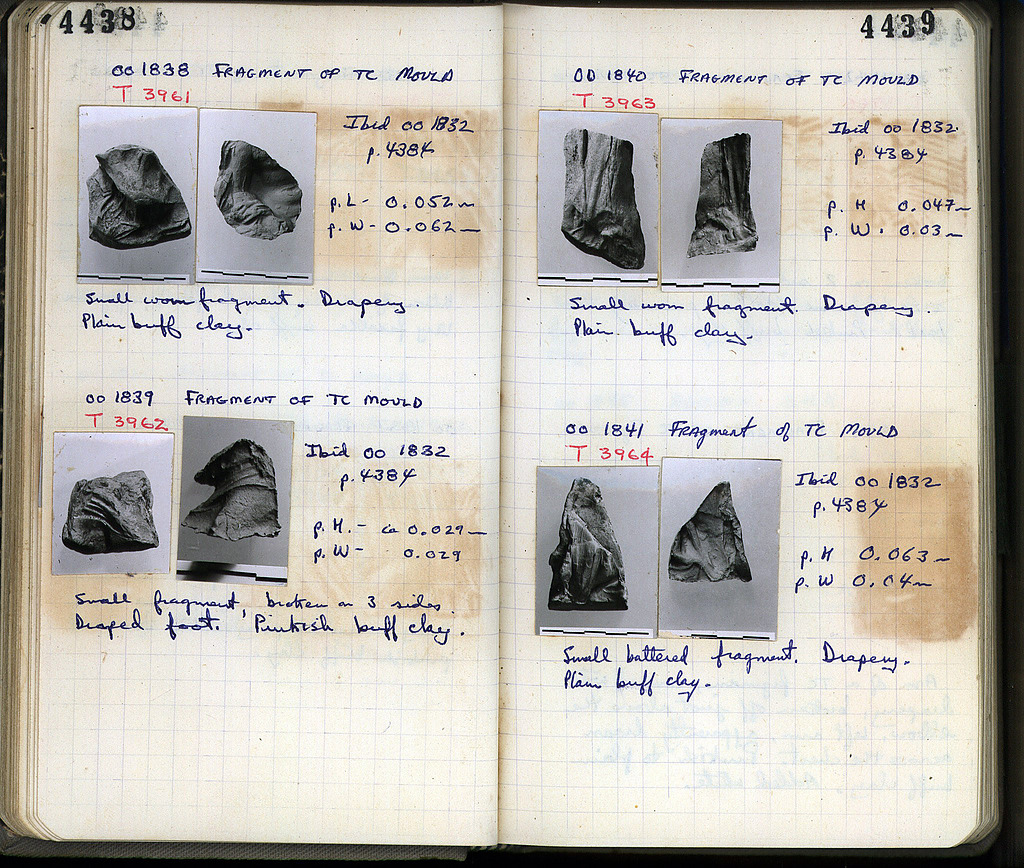 4438
OO 1838 FRAGMENT OF TC MOULD
T 3961
Ibid OO 1832
p. 4384
p. L - 0.052 m
p. W - 0.062 m
Small worn fragment. Drapery.
Plain buff clay.
OO 1839 FRAGMENT OF TC MOULD
T 3962
Ibid OO 1832
p. 4384
p. H. - ca 0.029 m
p. W - 0.029
Small fragment, broken on 3 sides.
Draped foot. Pinkish buff clay.
4439
OO 1840 FRAGMENT OF TC MOULD
T 3963
Ibid OO 1832.
p. 4384
p. H 0.047 m
p. W. 0.03 m
Small worn fragment. Drapery.
Plain buff clay.
OO 1841 FRAGMENT OF TC MOULD
T 3964
Ibid OO 1832
p. 4384
p. H 0.063 m
p. W 0.04 m
Small battered fragment. Drapery.
Plain buff clay.